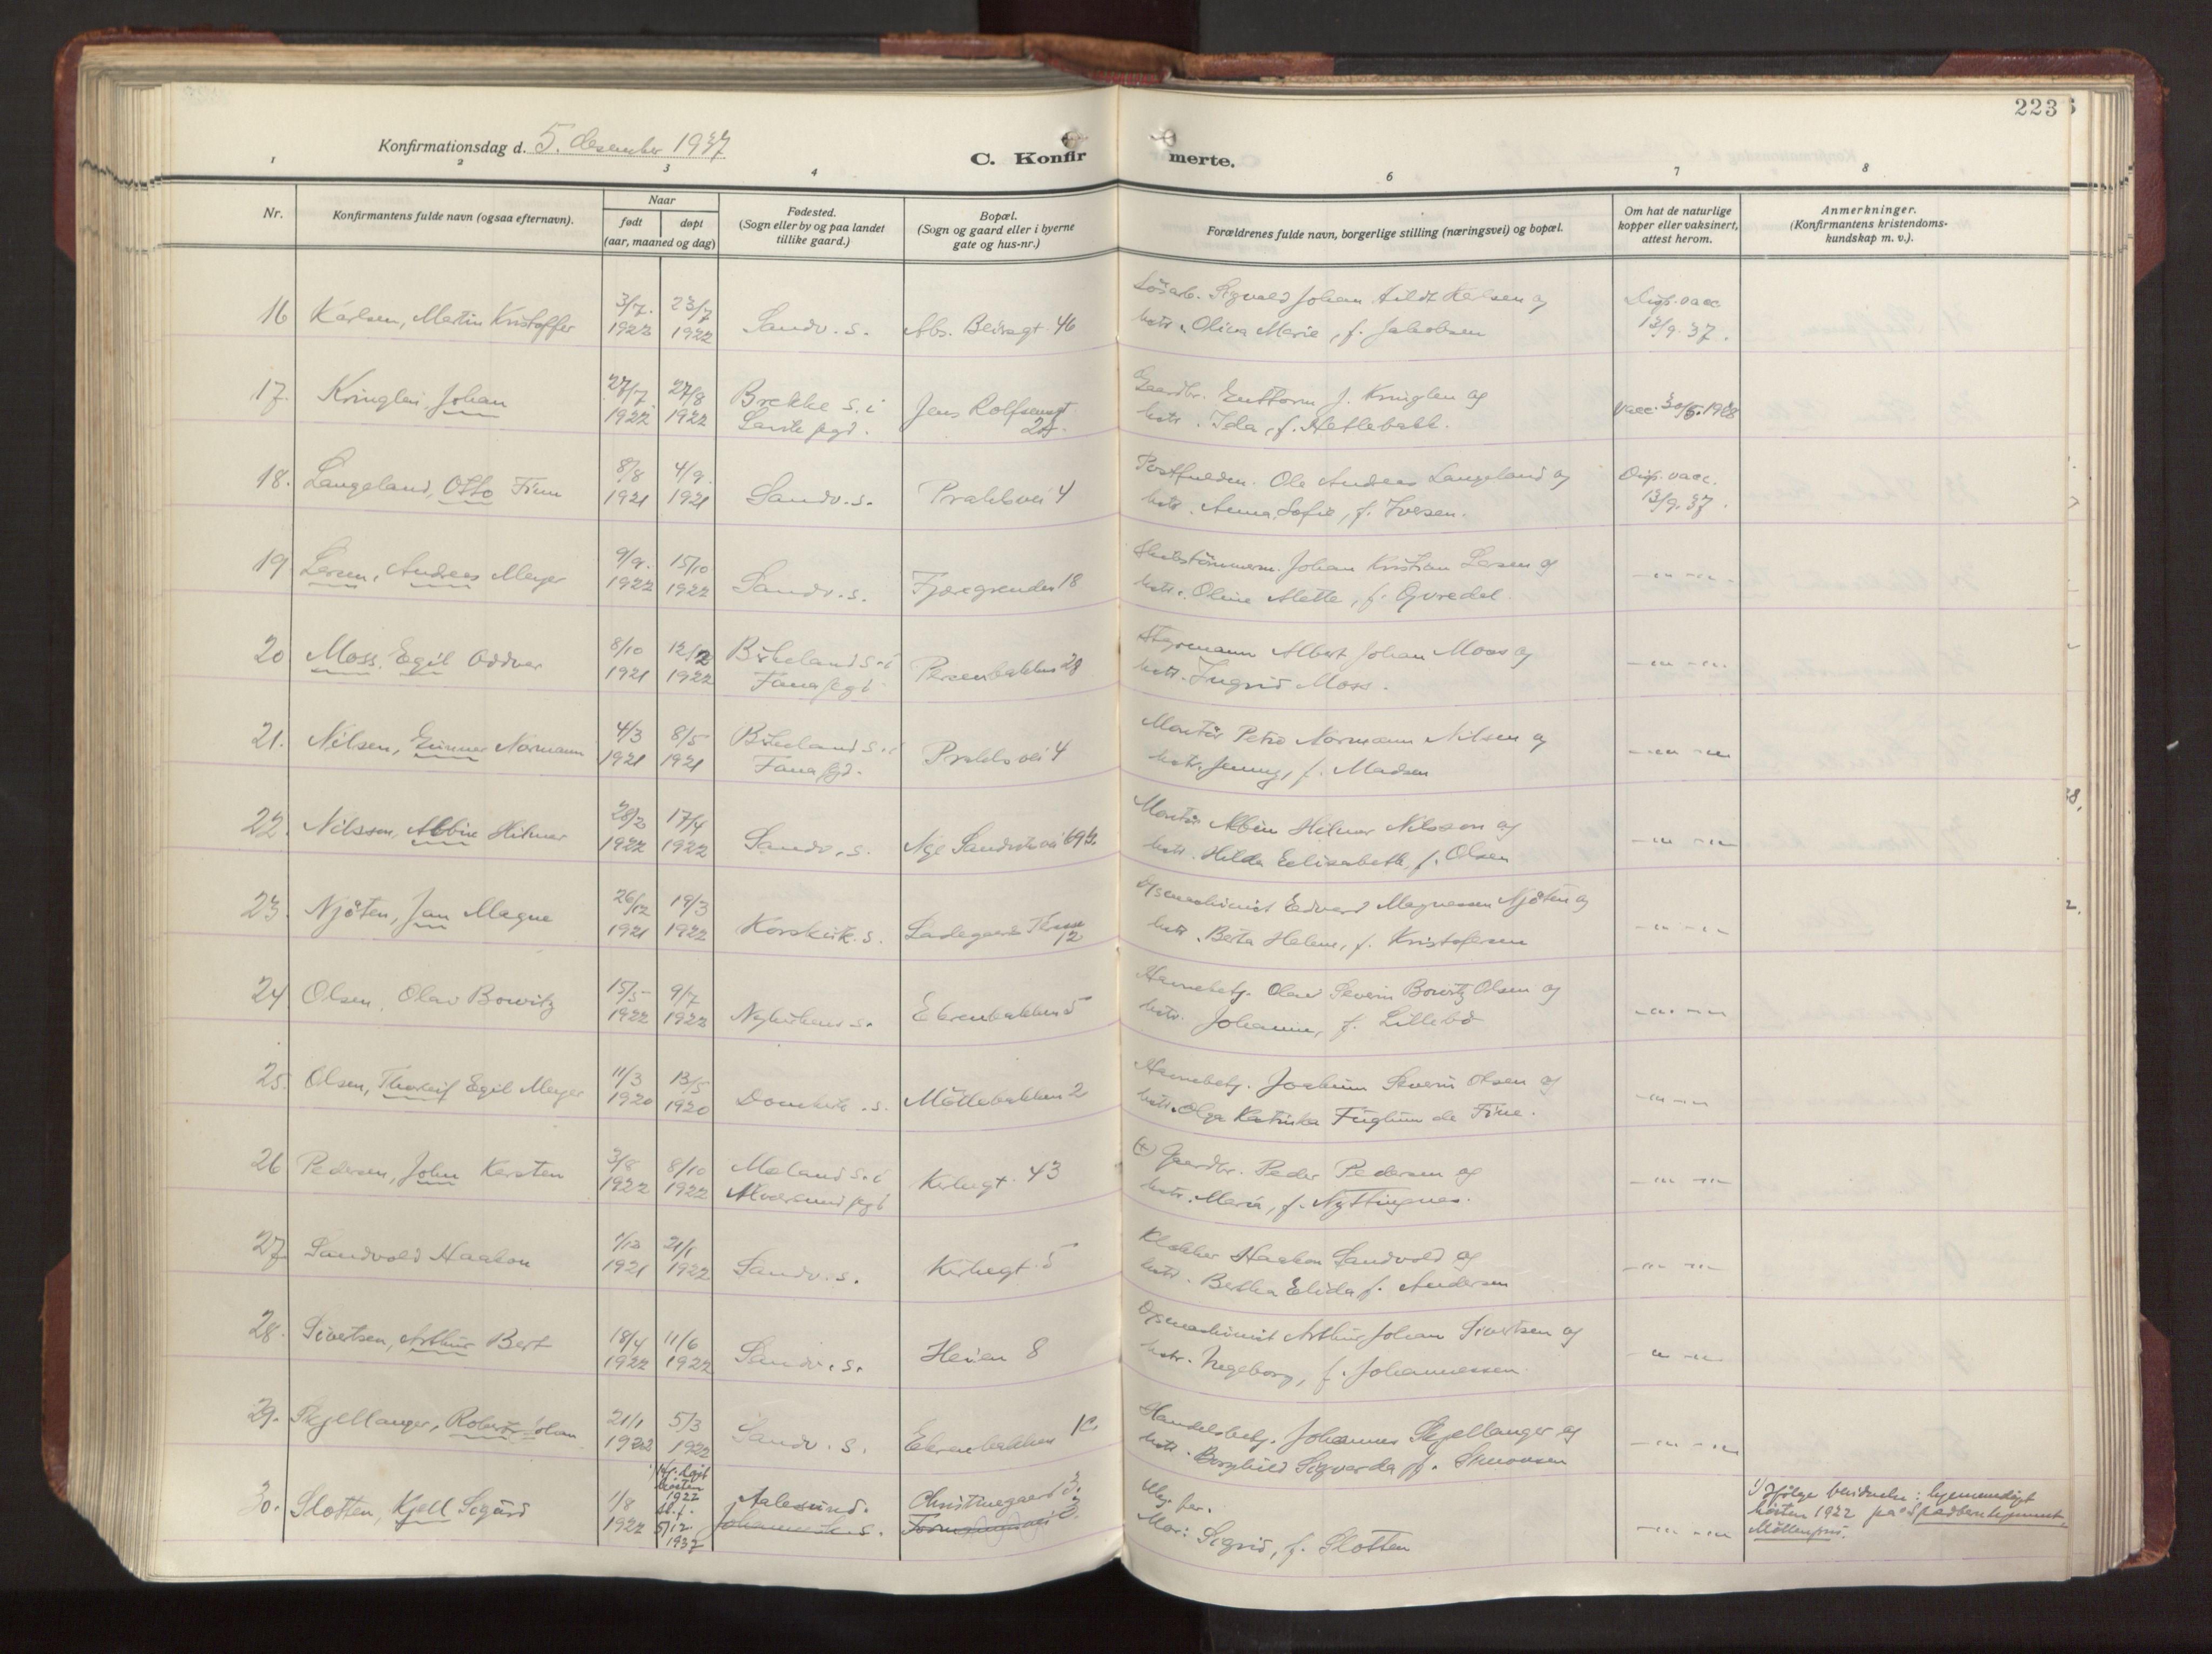 223
Konfirmationsdag d. 5. desember 1937
C. Konfirmerte.
1 2 3 4 6 7 8
Nr.
Konfirmantens fulde navn (ogsaa efternavn).
Naar
født døpt
(aar, maaned og dag)
Fødested.
(Sogn eller by og paa landet
tillike gaard.)
Bopæl.
(Sogn og gaard eller i byerne
gate og hus-nr.)
Forældrenes fulde navn, borgerlige stilling (næringsvei) og bopæl.
Om hat de naturlige
kopper eller vaksinert,
attest herom.
Anmerkninger.
(Konfirmantens kristendoms-
kundskap m. v.).
16 Karlsen, Martin Kristoffer 3/7. 1922 23/7 1922 Sandv. s. Abs. Beiersgt. 46
Løsarb. Sigvald Johan Karlsen og
hstr. Oliva Marie, f. Jakobsen
Disp. vacc 13/9. 37.
17. Kringlen, Johan 27/7. 1922 27/8 1922 Brekke s. i
Gaardbr. Guttorm J. Kringlen og
hstr. Ida, f. Hetlebakk.
vacc. 30/5. 1928
18. Langeland, Otto Finn 8/8 1921 4/9. 1921 Sandv. s. Prahlsvei 4
Ole Andreas Langeland og
hstr. Anna Sofie, f. Iversen.
Disp. vacc. 13/9. 37.
19 Larsen, Andreas Meyer 9/9. 1922 15/10 1922 Sandv. s. Fjæregrenden 18
Skibstømmerm. Johan Kristian Larsen og
hstr. Oline Alette, f.
— " — " —
20 Moss, Egil Oddvar 8/10 1921 12/2 1922 Birkeland s. i
Fana pgd. Persenbakken 28
Styrmann Albert Johan Moss og
hstr. Ingrid Moss.
— " — " —
21. Nilsen, Gunnar Normann 4/3 1921 8/5 1921 Birkeland s. i
Fana pgd. Prahlsvei 4
Montør Petro Normann Nilsen og
hstr. Jenny, f. Madsen
— " — "
22. Nilsson, Albin Hilmar 28/2 1922 17/4 1922 Sandv. s. Nye Sandviksvei 69b.
Montør Albin Hilmar Nilsson og
hstr. Hilda Elisabeth, f. Olsen
— " — "
23. Njøten, Jan Magne 26/12 1921 19/3 1922 Korskirk. s. Ladegaards Terasse 12
Eedvard Magnussen Njøten og
hstr. Berta Helene, f. Kristofersen
— " — " —
24 Olsen, Olav Bowitz 15/5 1922 9/7 1922 Nykirkens s. Ekrenbakken 5
Havnebetj. Olav Severin Bowitz Olsen og
hstr. Johanne, f. Lillebø
— " — "
25. Olsen, Thorleif Egil Meyer 11/3 1920 13/5 1920 Domkirk. s. Møllebakken 2
Havnebetj. Joachim Severin Olsen og
hstr. Olga Katrika Fuglum de Fine.
— " — "
26 Pedersen, John Karsten 3/8 1922 8/10 1922 Meland s. i
Alversund pgd Kirkegt. 43
(+) Gaardbr. Peder Pedersen og
hstr. Maria, f. Nyttingnes.
— " — "
27. Sandvold Haakon 1/12 1921 21/1 1922 Sandv. s. Kirkegt. 5
Klokker Haakon Sandvold og
hstr. Bertha Elida f. Andersen
— " — "
28. Sivertsen, Arthur Bert 18/4 1922 11/6 1922 Sandv. s. Heien 8
Arthur Johan Sivertsen og
hstr. Ingeborg, f. Johannessen
" — "
29. Skjellanger, Robert Johan 21/1 1922 5/3 1922 Sandv. s. Ekrenbakken 1c.
Handelsbetj. Johannes Skjellanger og
hstr. Borghild Sigvarda f. Simonsen
— " — "
30. Slotten, Kjell Sigurd 1/8 1922 1) Hj. døpt høsten 1922 st. f. 5/12. 1937 Aalesund. Christinegaard 3.
Johanneskk. s.
Ug. far.
Mor: Sigrid, f. Slotten
— " — "
1) Ifølge hjemmedøpt
høsten 1922 på Spedbarnhjemmet
Møllenpris.